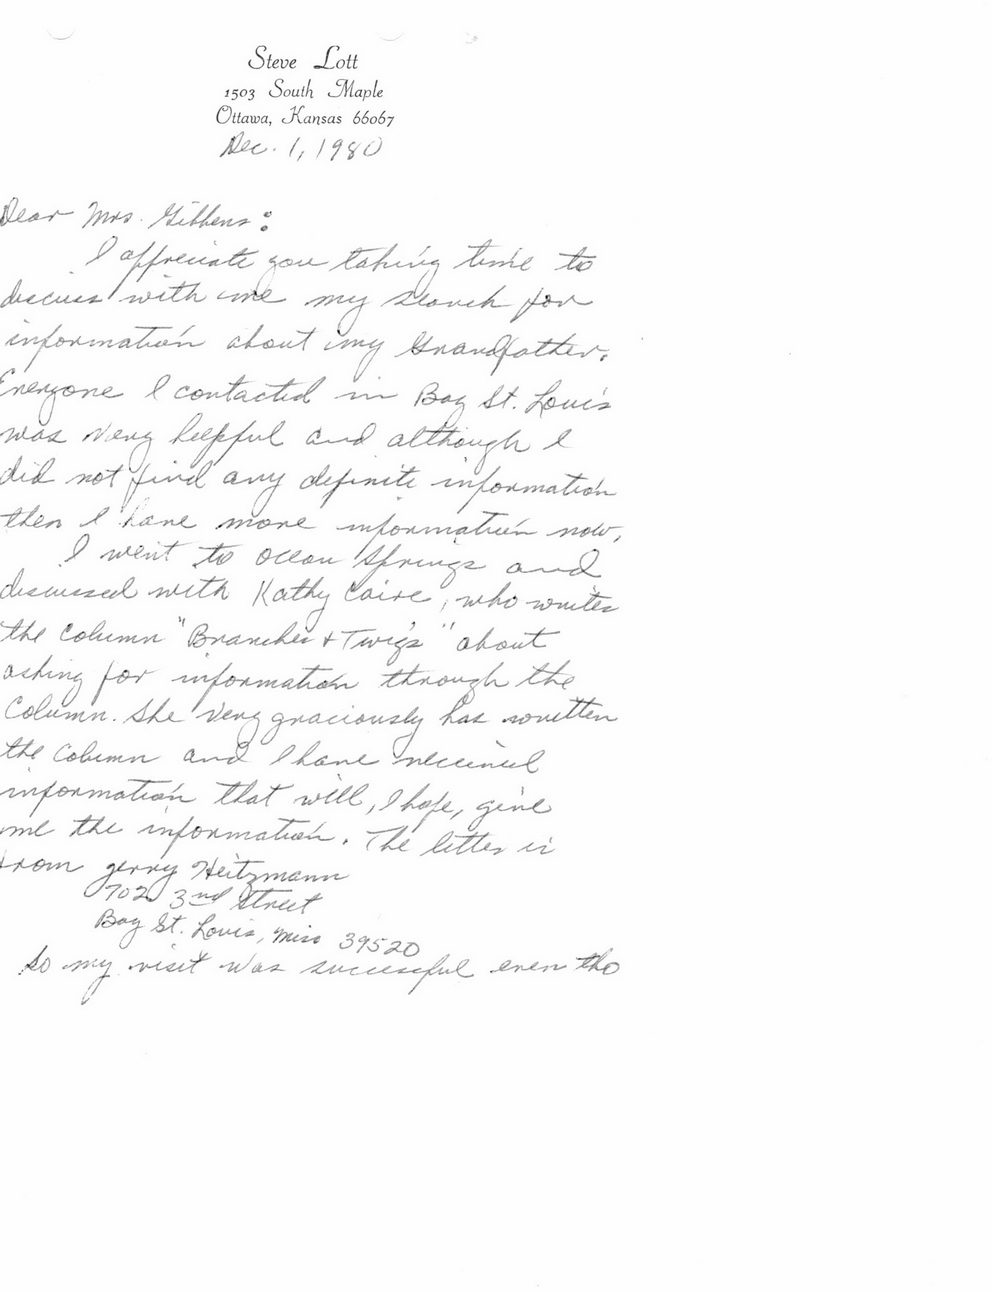 Steve Lott
1503 South Maple
Ottawa, Kansas 66067
Dec. 1, 1980
Dear Mrs. Gibbens:
I appreciate you taking time to
discuss with me my search for
information about my Grandfather.
Everyone I contacted in Bay St. Louis
was very helpful and although I
did not find any definite information
then I have more information now.
I went to Ocean Springs and
discussed with Kathy Caire, who writes
the column "Branches + Twigs" about
asking for information through the
Column. She very graciously has written
the column and I have received
information that will, I hope, give
me the information. The letter is
from Jerry Heitzmann
702 3rd Street
Bay St. Louis, Miss 39520
So my visit was successful even tho